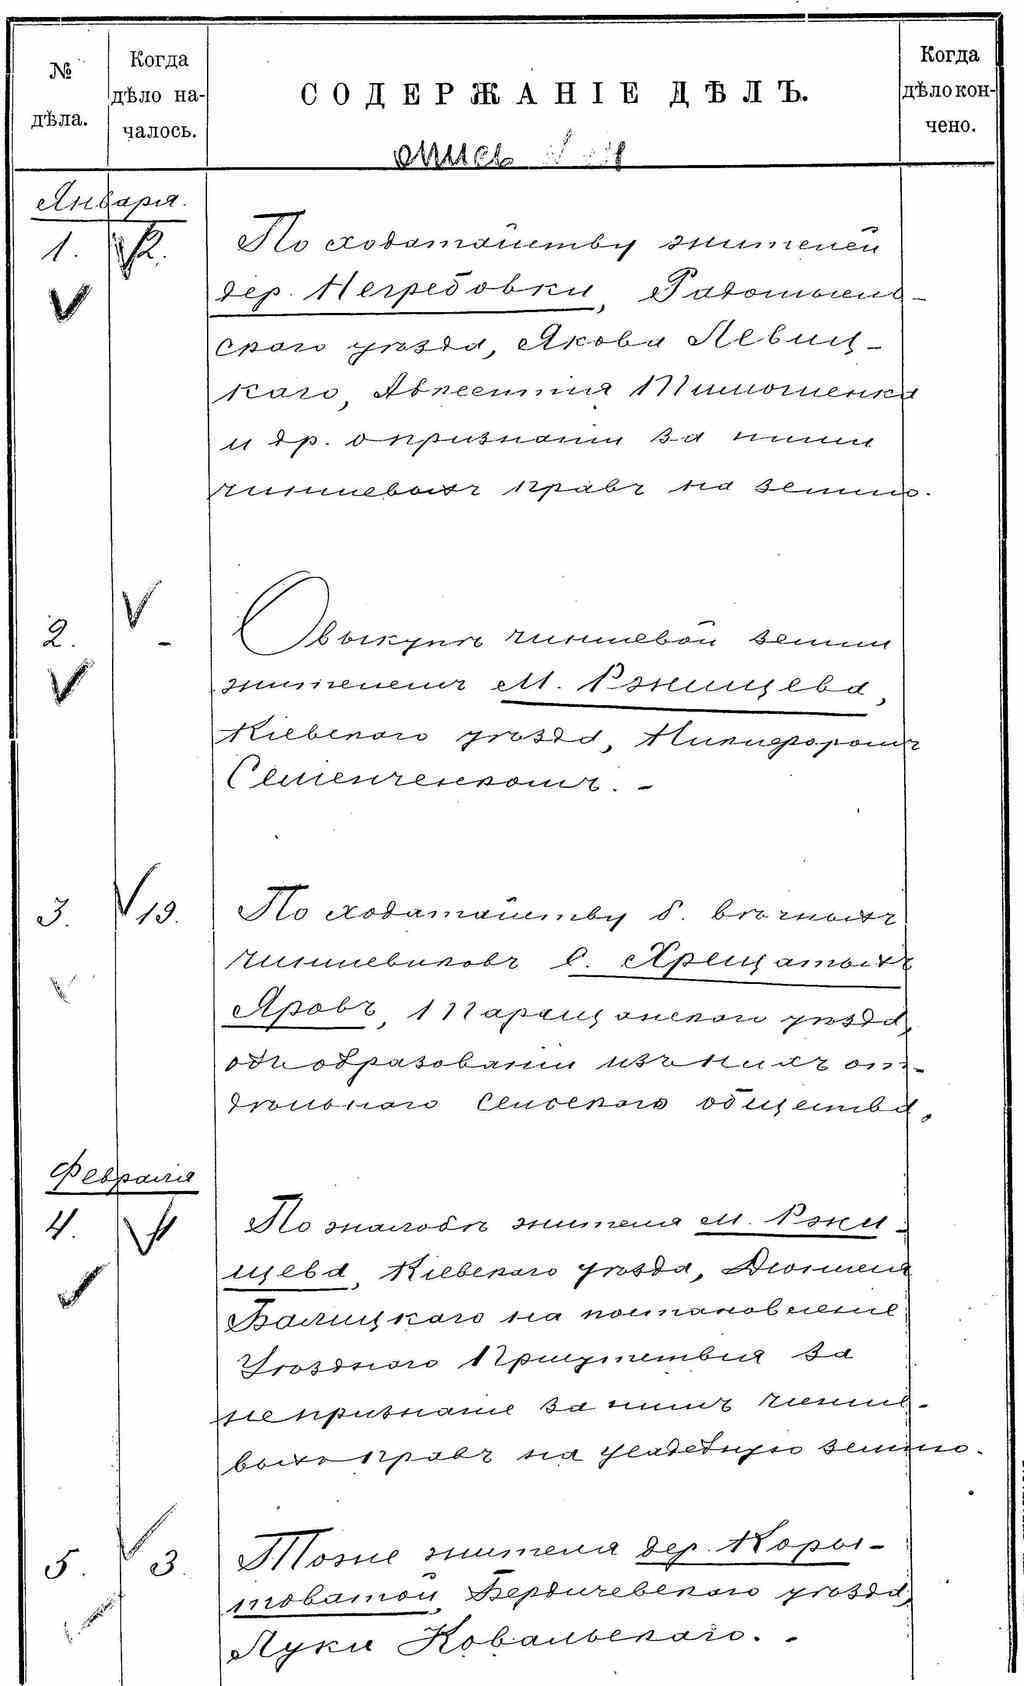 № дѣла.
Когда дѣло на-чалось.
СОДЕРЖАНІЕ ДѢЛЪ.
Когда дѣло кон-чено.
опись
Января.
1. 2. По ходатайству жителей
дер. Негребовки, Радомысль-
скаго уѣзда, Якова Левиц-
каго, Авксентія Тимошенка
и др. о признаніи за ними
чиншевыхъ правъ на землю.
2. - О выкупѣ чиншевой земли
жителемъ м. Ржищева,
Кіевскаго уѣзда, Никифоромъ
Семенченкомъ. -
3. 19. По ходатайству б. вѣчныхъ
чиншевиковъ с. Хрещатыхъ
Яровъ, Таращанскаго уѣзда,
объ образованіи изъ нихъ от-
дѣльнаго сельскаго общества.
Февраля
4. По жалобѣ жителя м. Ржи-
щева, Кіевскаго уѣзда,
Балицкаго на постановленіе
Уѣзднаго Присутствія за
непризнаніе за нимъ чинше-
выхъ правъ на усадебную землю.
5. 3. Тоже жителя дер. Коры-
товатой, Бердичевскаго уѣзда,
Луки Ковальскаго. -